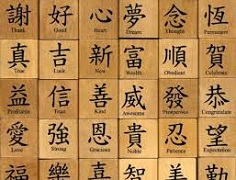 謝 好 心 夢 念 恆
Thank Good Heart Dream Thought Permanent
真 吉 新 富 順 賀
True Luck New Wealth Obedient Celebrate
益 信 善 威 發 恭
Profitable Trust Kind Awesome Prosperous Congratulate
愛 強 恩 貴 忍 望
Love Strong Grace Noble Patience Expectation
福 樂 喜 智